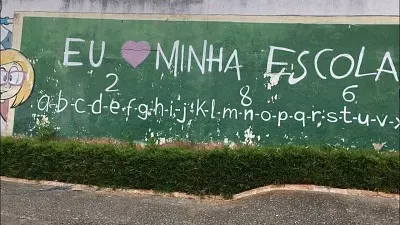 EU MINHA ESCOLA
2 8 6
a-b-c-d-e-f-g-h-i-j-k-l-m-n-o-p-q-r-s-t-u-v-x